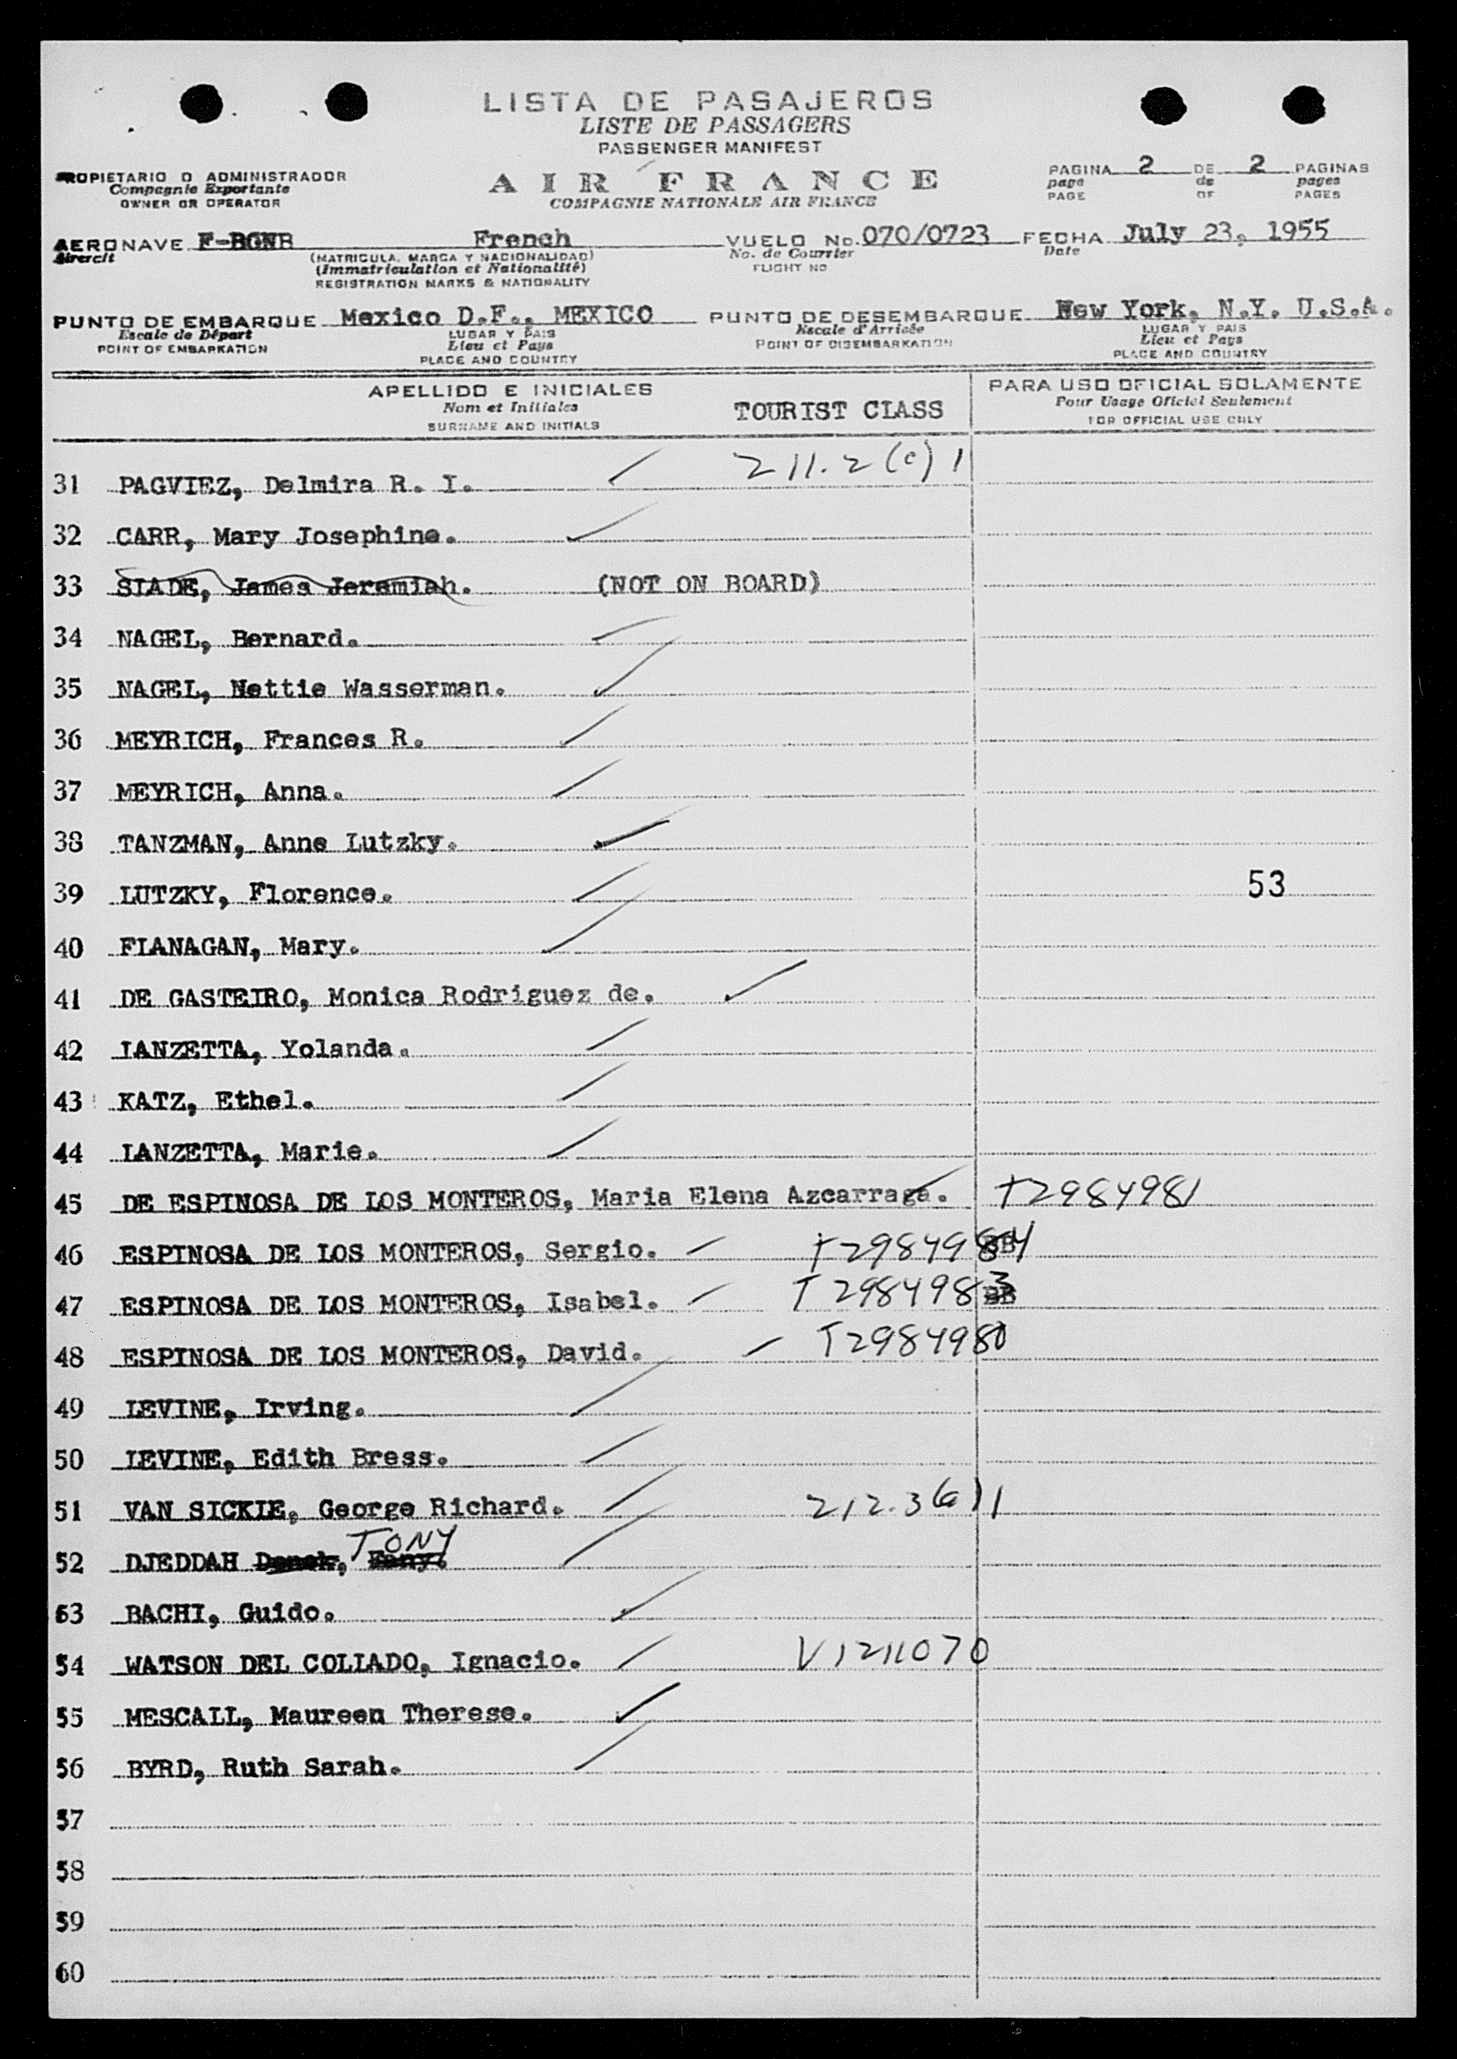 LISTA DE PASAJEROS
LISTE DE PASSAGERS
PASSENGER MANIFEST
PROPIETARIO O ADMINISTRADOR
Compagnie Exportante
OWNER OR OPERATOR
AIR FRANCE
COMPAGNIE NATIONALE AIR FRANCE
PAGINA 2 DE 2 PAGINAS
page de pages
PAGE OF PAGES
AERONAVE F-BGNB French VUELO No. 070/0723 FECHA July 23, 1955
Aircrcft (MATRICULA, MARCA Y NACIONALIDAD) No. de Courrier Date
(Immatriculation et Nationalité) FLIGHT NO
REGISTRATION MARKS & NATIONALITY
PUNTO DE EMBARQUE Mexico D.F., MEXICO PUNTO DE DESEMBARQUE New York, N.Y. U.S.A.
Escale de Départ LUGAR Y PAIS Escale d'Arrivée LUGAR Y PAIS
POINT OF EMBARKATION Lieu et Pays POINT OF DISEMBARKATION Lieu et Pays
PLACE AND COUNTRY PLACE AND COUNTRY
APELLIDO E INICIALES PARA USO OFICIAL SOLAMENTE
Nom et Initiales TOURIST CLASS Pour Usage Oficiel Seulement
SURNAME AND INITIALS FOR OFFICIAL USE ONLY
31 PAGVIEZ, Delmira R. I. 211.2(c)1
32 CARR, Mary Josephine.
33 SLADE, James Jeramiah. (NOT ON BOARD)
34 NAGEL, Bernard.
35 NAGEL, Nettie Wasserman.
36 MEYRICH, Frances R.
37 MEYRICH, Anna.
38 TANZMAN, Anne Lutzky.
39 LUTZKY, Florence. 53
40 FLANAGAN, Mary.
41 DE GASTEIRO, Monica Rodriguez de.
42 LANZETTA, Yolanda.
43 KATZ, Ethel.
44 LANZETTA, Marie.
45 DE ESPINOSA DE LOS MONTEROS, Maria Elena Azcarraga. T2984981
46 ESPINOSA DE LOS MONTEROS, Sergio. T2984984
47 ESPINOSA DE LOS MONTEROS, Isabel. T2984983
48 ESPINOSA DE LOS MONTEROS, David. T2984980
49 LEVINE, Irving.
50 LEVINE, Edith Bress.
51 VAN SICKLE, George Richard. 212.3(a)1
52 DJEDDAH, TONY
53 BACHI, Guido.
54 WATSON DEL COLLADO, Ignacio. V1211070
55 MESCALL, Maureen Therese.
56 BYRD, Ruth Sarah.
57
58
59
60